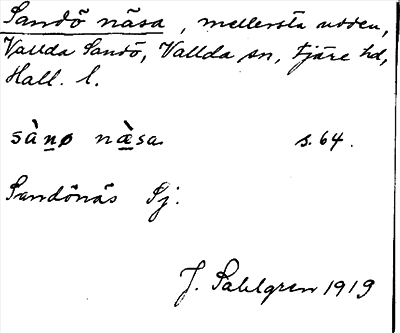 Sandö näsa, mellersta udden,
Vallda Sandö, Vallda sn, Fjäre hd,
Hall. l.
sàṉø næ̀sa s. 64.
Sandönäs Sj.
J. Sahlgren 1919